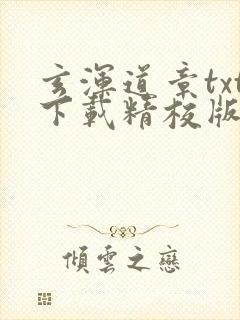 玄渾道章txt
下載精校版
傾雲之戀